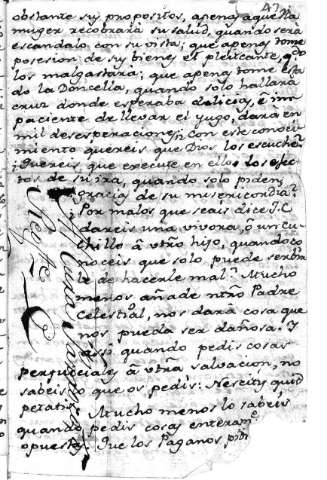 47
obstante sus propositos, apenas aquella
muger recobrara su salud, quando será
escandalo con su vista; que apenas tome
posesion de sus bienes el pleiteante, qdo
los malgastara; que apenas tome esta
do la Doncella, quando solo hallara
cruz donde esperaba delicias, e im
paciente de llevar el yugo, dara en
mil desesperaciones; Con este conoci
miento quereis que Dios los escuche?
Quereis que execute en ellos los efec
tos de su ira, quando solo piden
gracias de su misericordia?
Por malos que seais dice J.C.
dareis una vivora, o un cu
chillo â vtro hijo, quando co
noceis que solo puede servir
le de hacerle mal? Mucho
menos añade ntro Padre
Celestial, nos dará cosa que
nos pueda ser dañosa. Y
assi quando pedis cosas
perjudiciales â vtra salvacion, no
sabeis lo que os pedis: Nescitis quid
petatis.
Mucho menos lo sabeis
quando pedis cosas enteramte
opuestas. Que los Paganos